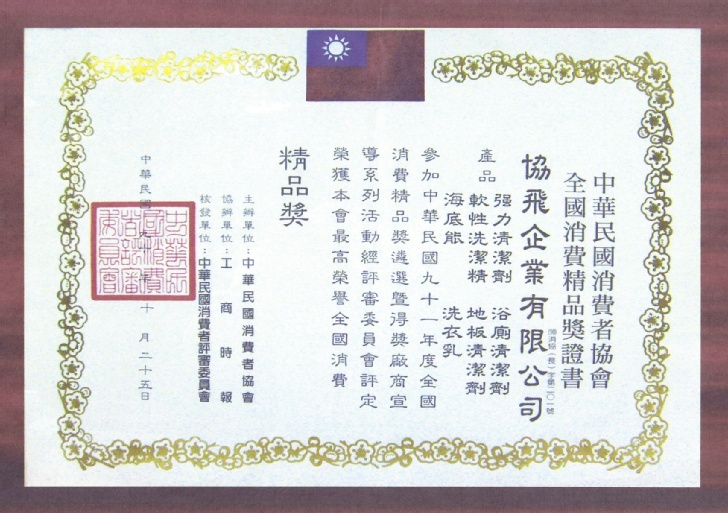 中華民國消費者協會
全國消費精品獎證書
協飛企業有限公司
產品
強力清潔劑 浴廁清潔劑
軟性洗潔精 地板清潔劑
海底能 洗衣乳
參加中華民國九十一年度全國
消費精品獎遴選暨得獎廠商宣
導系列活動經評審委員會評定
榮獲本會最高榮譽全國消費
精品獎
主辦單位：中華民國消費者協會
協辦單位：工商時報
核發單位：中華民國消費者評審委員會
中華民國 十月二十五日